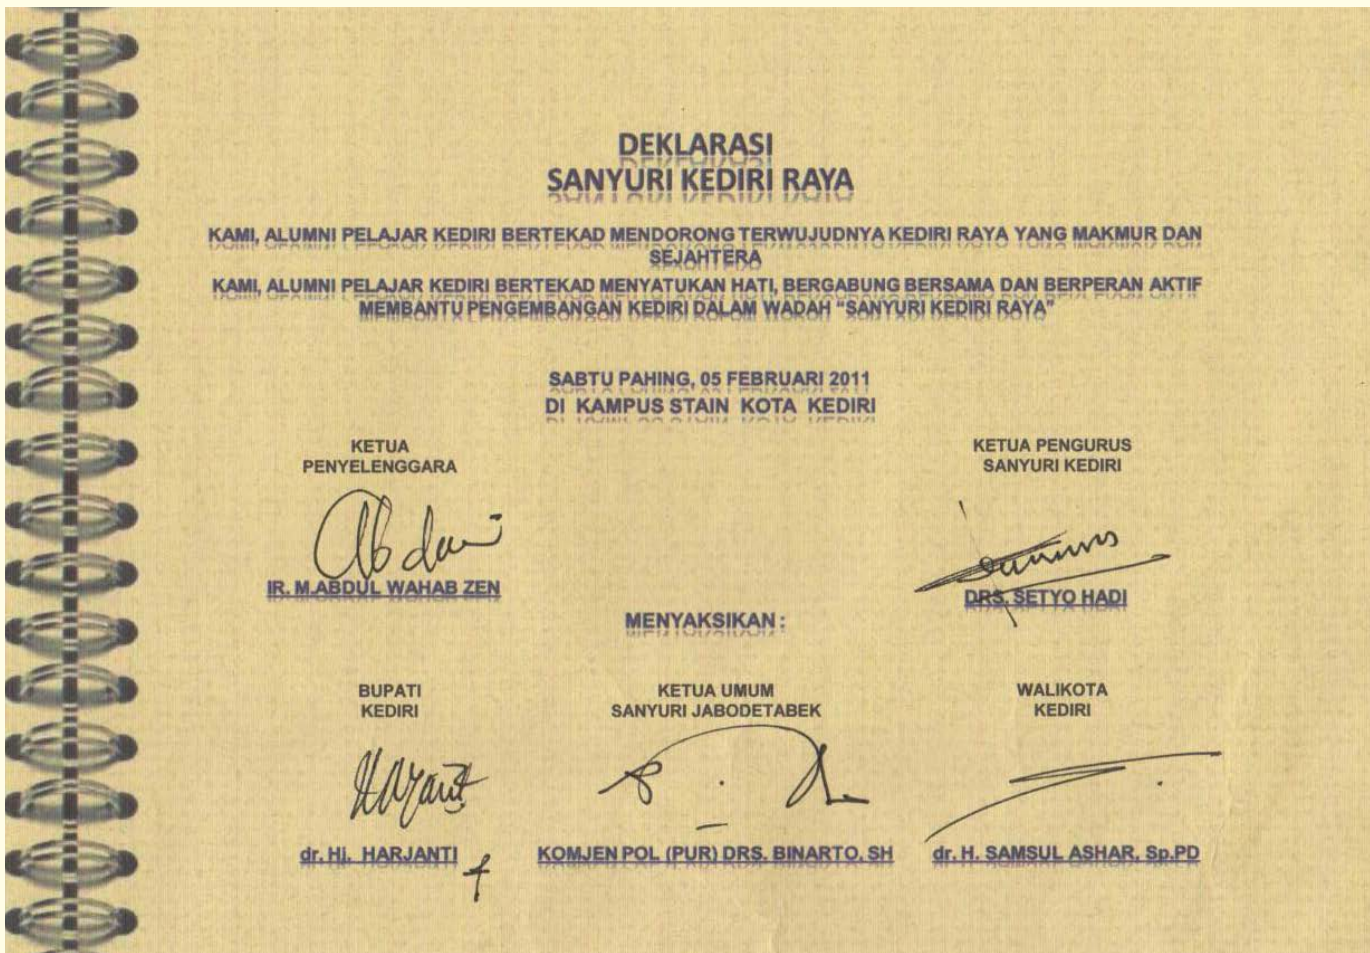 DEKLARASI
SANYURI KEDIRI RAYA
KAMI, ALUMNI PELAJAR KEDIRI BERTEKAD MENDORONG TERWUJUDNYA KEDIRI RAYA YANG MAKMUR DAN
SEJAHTERA
KAMI, ALUMNI PELAJAR KEDIRI BERTEKAD MENYATUKAN HATI, BERGABUNG BERSAMA DAN BERPERAN AKTIF
MEMBANTU PENGEMBANGAN KEDIRI DALAM WADAH “SANYURI KEDIRI RAYA”
SABTU PAHING, 05 FEBRUARI 2011
DI KAMPUS STAIN KOTA KEDIRI
KETUA
PENYELENGGARA
IR. M.ABDUL WAHAB ZEN
KETUA PENGURUS
SANYURI KEDIRI
DRS. SETYO HADI
MENYAKSIKAN :
BUPATI
KEDIRI
dr. Hj. HARJANTI
KETUA UMUM
SANYURI JABODETABEK
KOMJEN POL (PUR) DRS. BINARTO, SH
WALIKOTA
KEDIRI
dr. H. SAMSUL ASHAR, Sp.PD